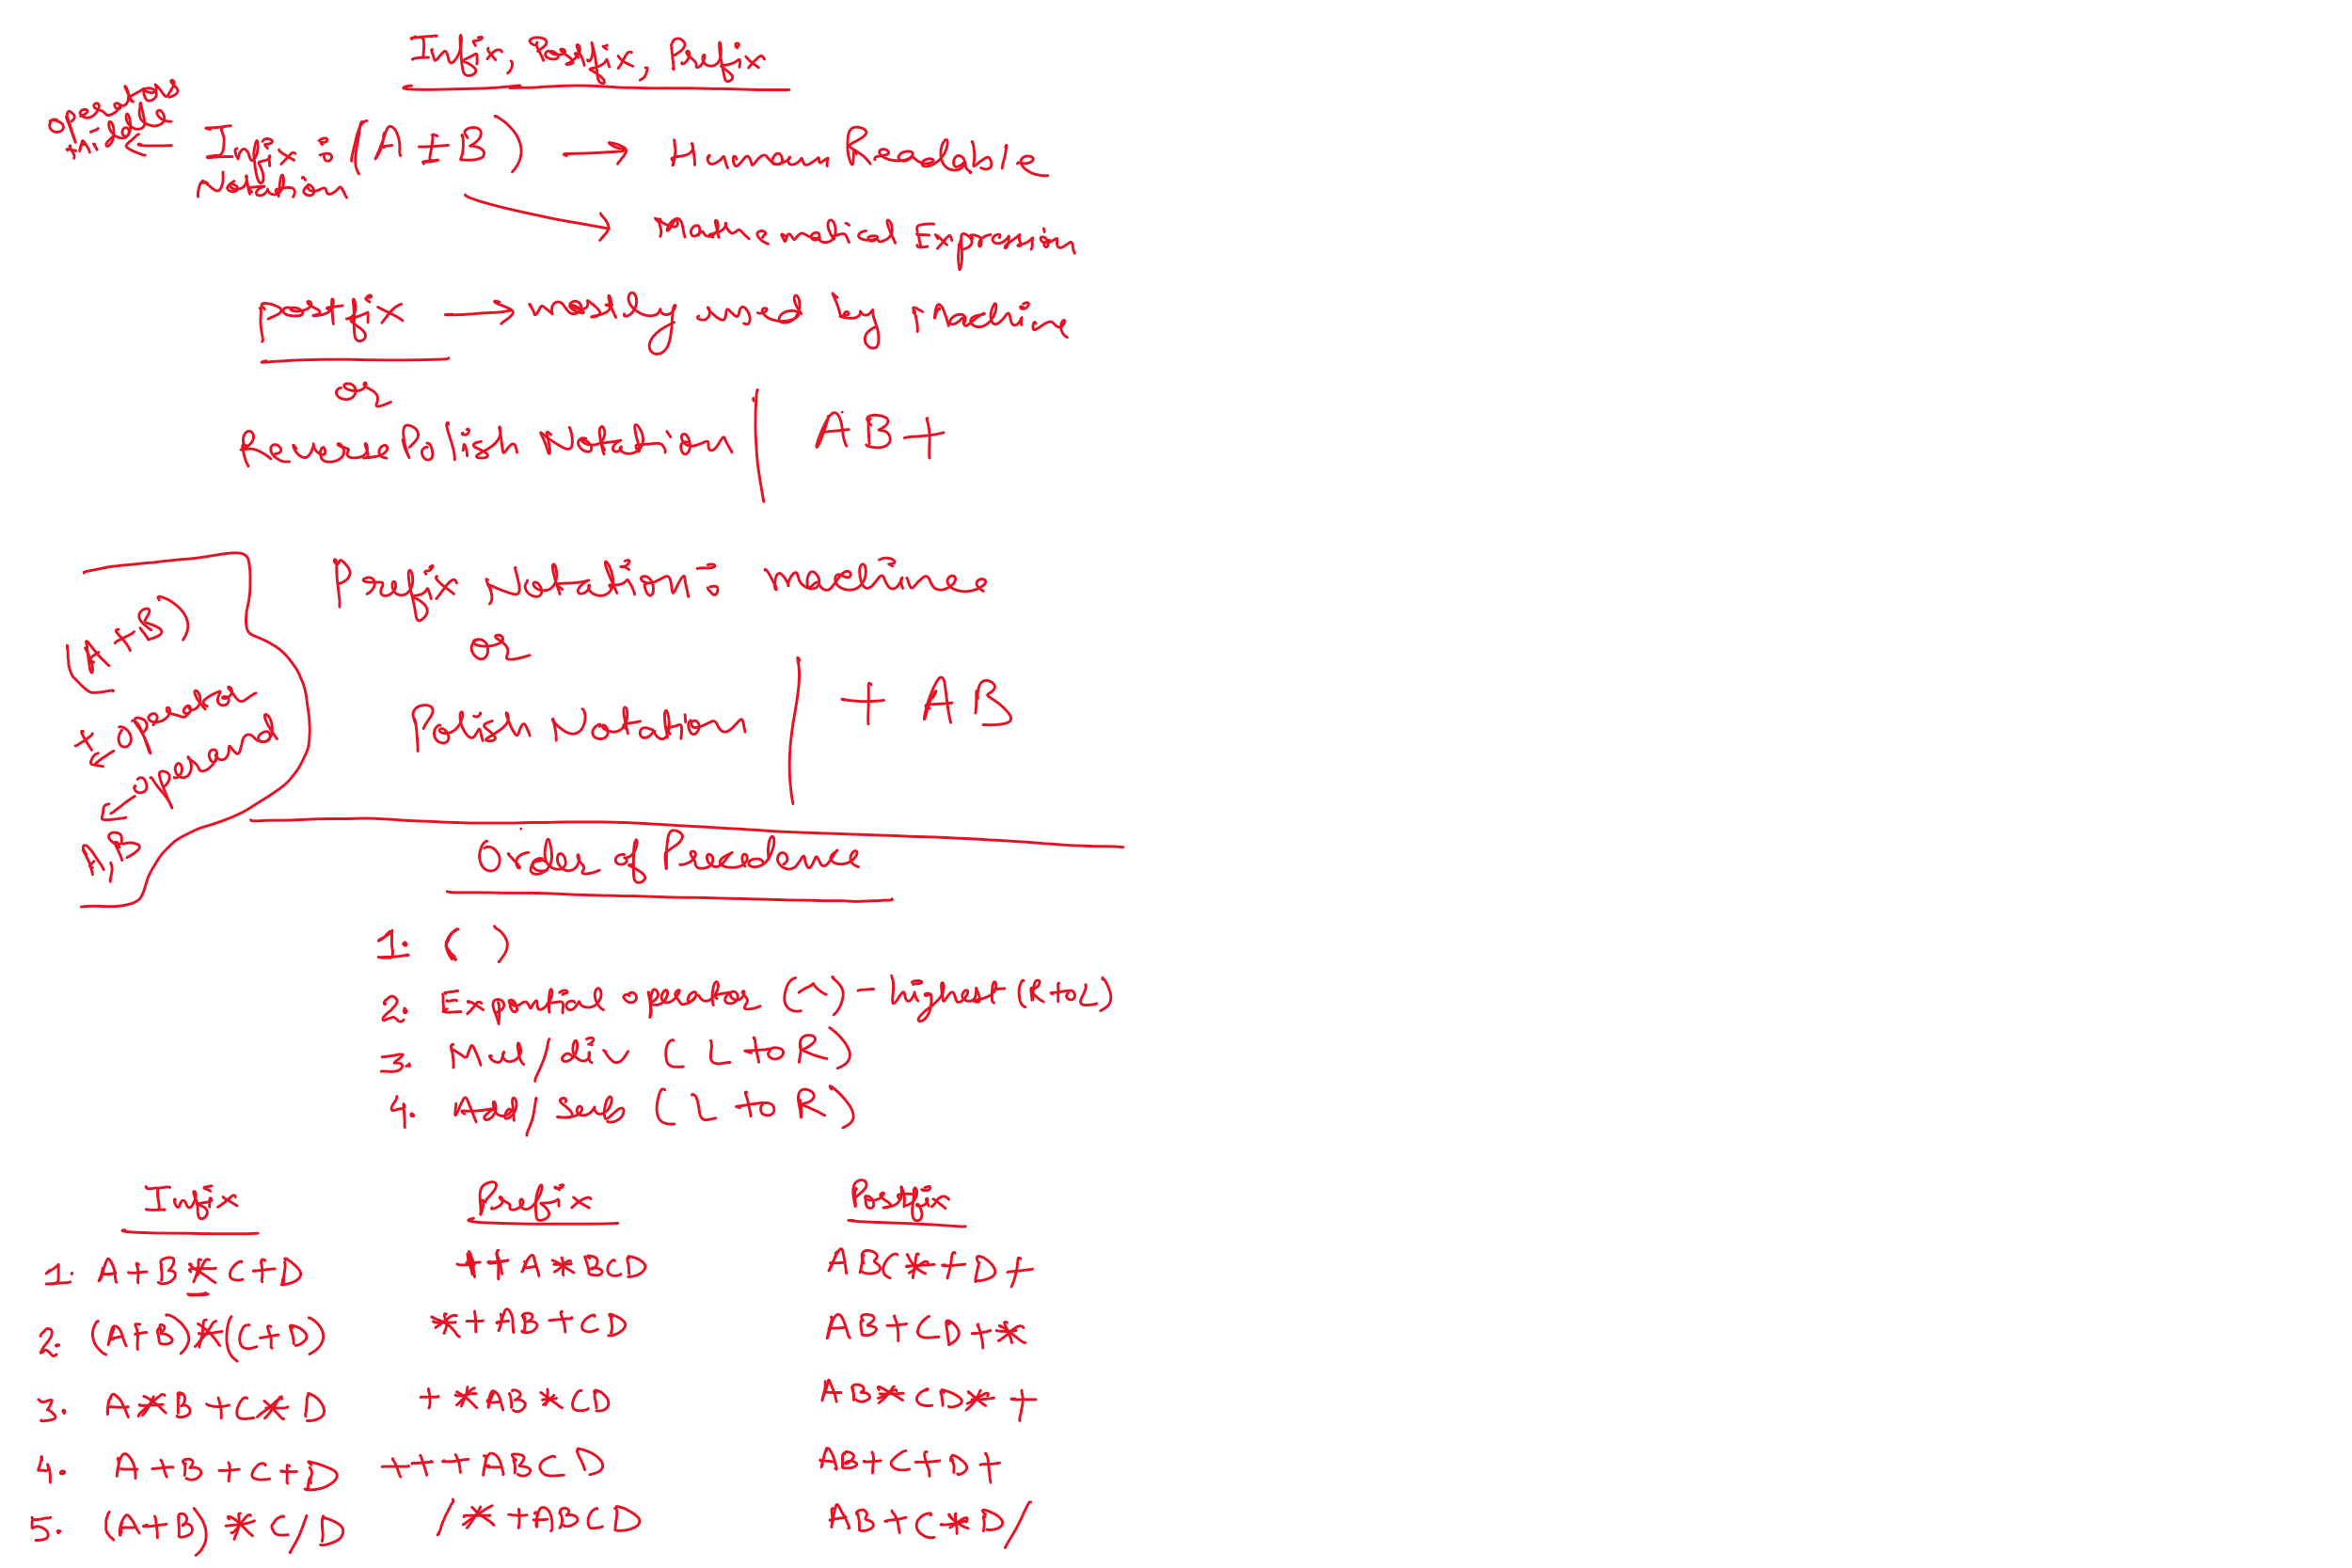 Infix, Postfix, Prefix
operators
in middle
Infix : (A+B) → Human Readable
Notation
Mathematical Expression
postfix → mostly used by machine
or
Reverse Polish Notation | AB+
Prefix Notation :- machines
or
Polish Notation | + AB
(A+B)
+ ← operator
← operand
A,B
Order of Precedence
1. ( )
2. Exponential operator (^) - highest (R to L)
3. Mul/div (L to R)
4. Add/sub (L to R)
Infix Prefix Postfix
1. A+B*C+D ++A*BCD ABC*+D+
2. (A+B)*(C+D) *+AB+CD AB+CD+*
3. A*B+C*D +*AB*CD AB*CD*+
4. A+B+C+D +++ABCD AB+C+D+
5. (A+B)*C/D /*+ABCD AB+C*D/